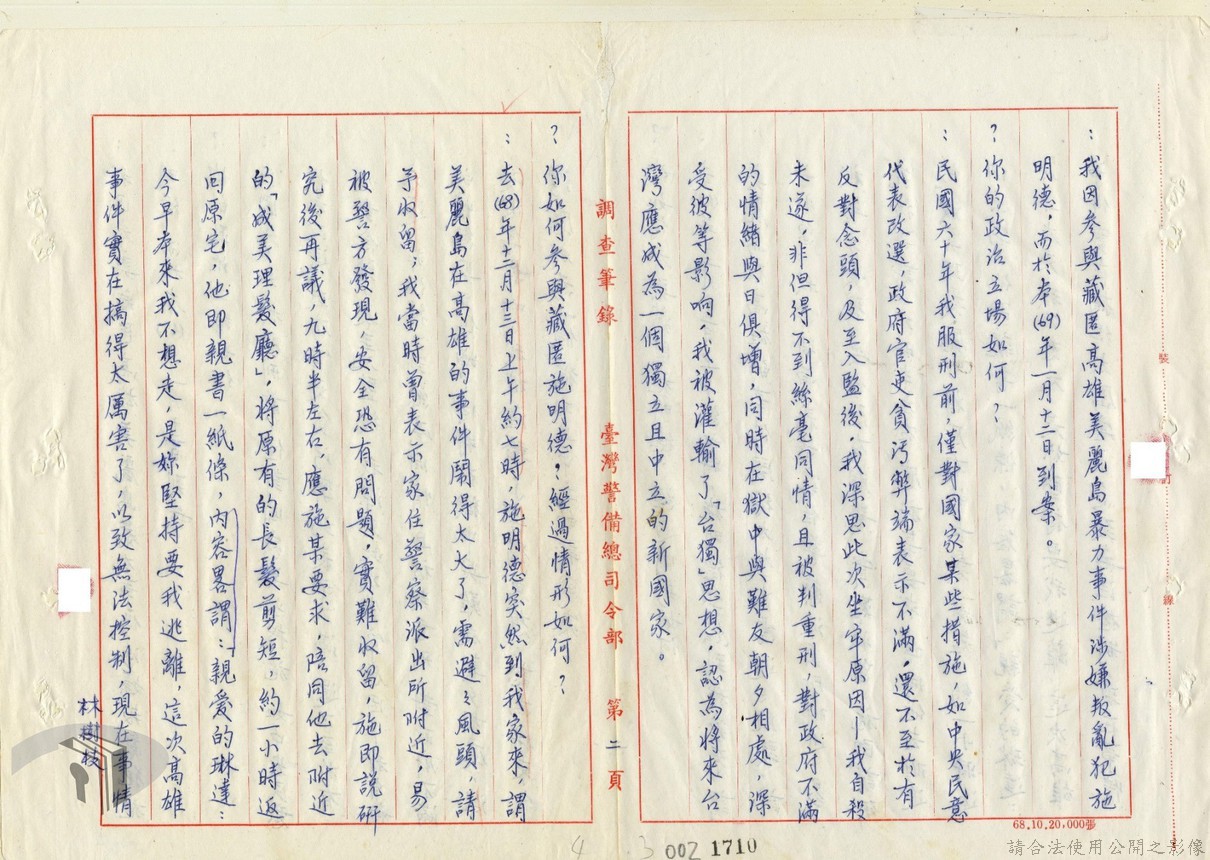 ：我因參與藏匿高雄美麗島暴力事件涉嫌叛亂犯施
明德，而於本(69)年一月十二日到案。
？你的政治立場如何？
：民國六十年我服刑前，僅對國家某些措施，如中央民意
代表改選，政府官吏貪污弊端表示不滿，還不至於有
反對念頭，及至入監後，我深思此次坐牢原因—我自殺
未遂，非但得不到絲毫同情，且被判重刑，對政府不滿
的情緒與日俱增，同時在獄中與難友朝夕相處，深
受彼等影响，我被灌輸了「台獨」思想，認為將來台
灣應成為一個獨立且中立的新國家。
調查筆錄 臺灣警備總司令部 第二頁
？你如何參與藏匿施明德？經過情形如何？
：去(68)年十二月十三日上午約七時，施明德突然到我家來，謂
美麗島在高雄的事件鬧得太大了，需避々風頭，請
予收留；我當時曾表示家住警察派出所附近，易
被警方發現，安全恐有問題，實難收留，施即說研
究後再議，九時半左右，應施某要求，陪同他去附近
的「成美理髮廳」，將原有的長髮剪短，約一小時返
回原宅，他即親書一紙條，內容畧謂：親愛的琳達：
今早本來我不想走，是妳堅持要我逃離，這次高雄
事件實在搞得太厲害了，以致無法控制，現在事情
林樹枝
裝
訂
線
68.10.20,000張
4
3
002
1710
請合法使用公開之影像